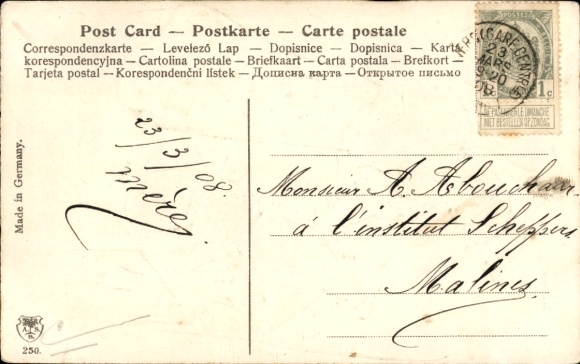 Post Card — Postkarte — Carte postale
Correspondenzkarte — Levelező Lap — Dopisnice — Dopisnica — Karta
korespondencyjna — Cartolina postale — Briefkaart — Carta postala — Brefkort —
Tarjeta postal — Korespondenční lístek — Дописна карта — Открытое письмо
23/3/08.
mère
Made in Germany.
Monsieur A. Abouchaar
à l'institut Scheppers
Malines
23
MARS
9-20
08
1c
NE PAS LIVRER LE DIMANCHE
NIET BESTELLEN OP ZONDAG
250.